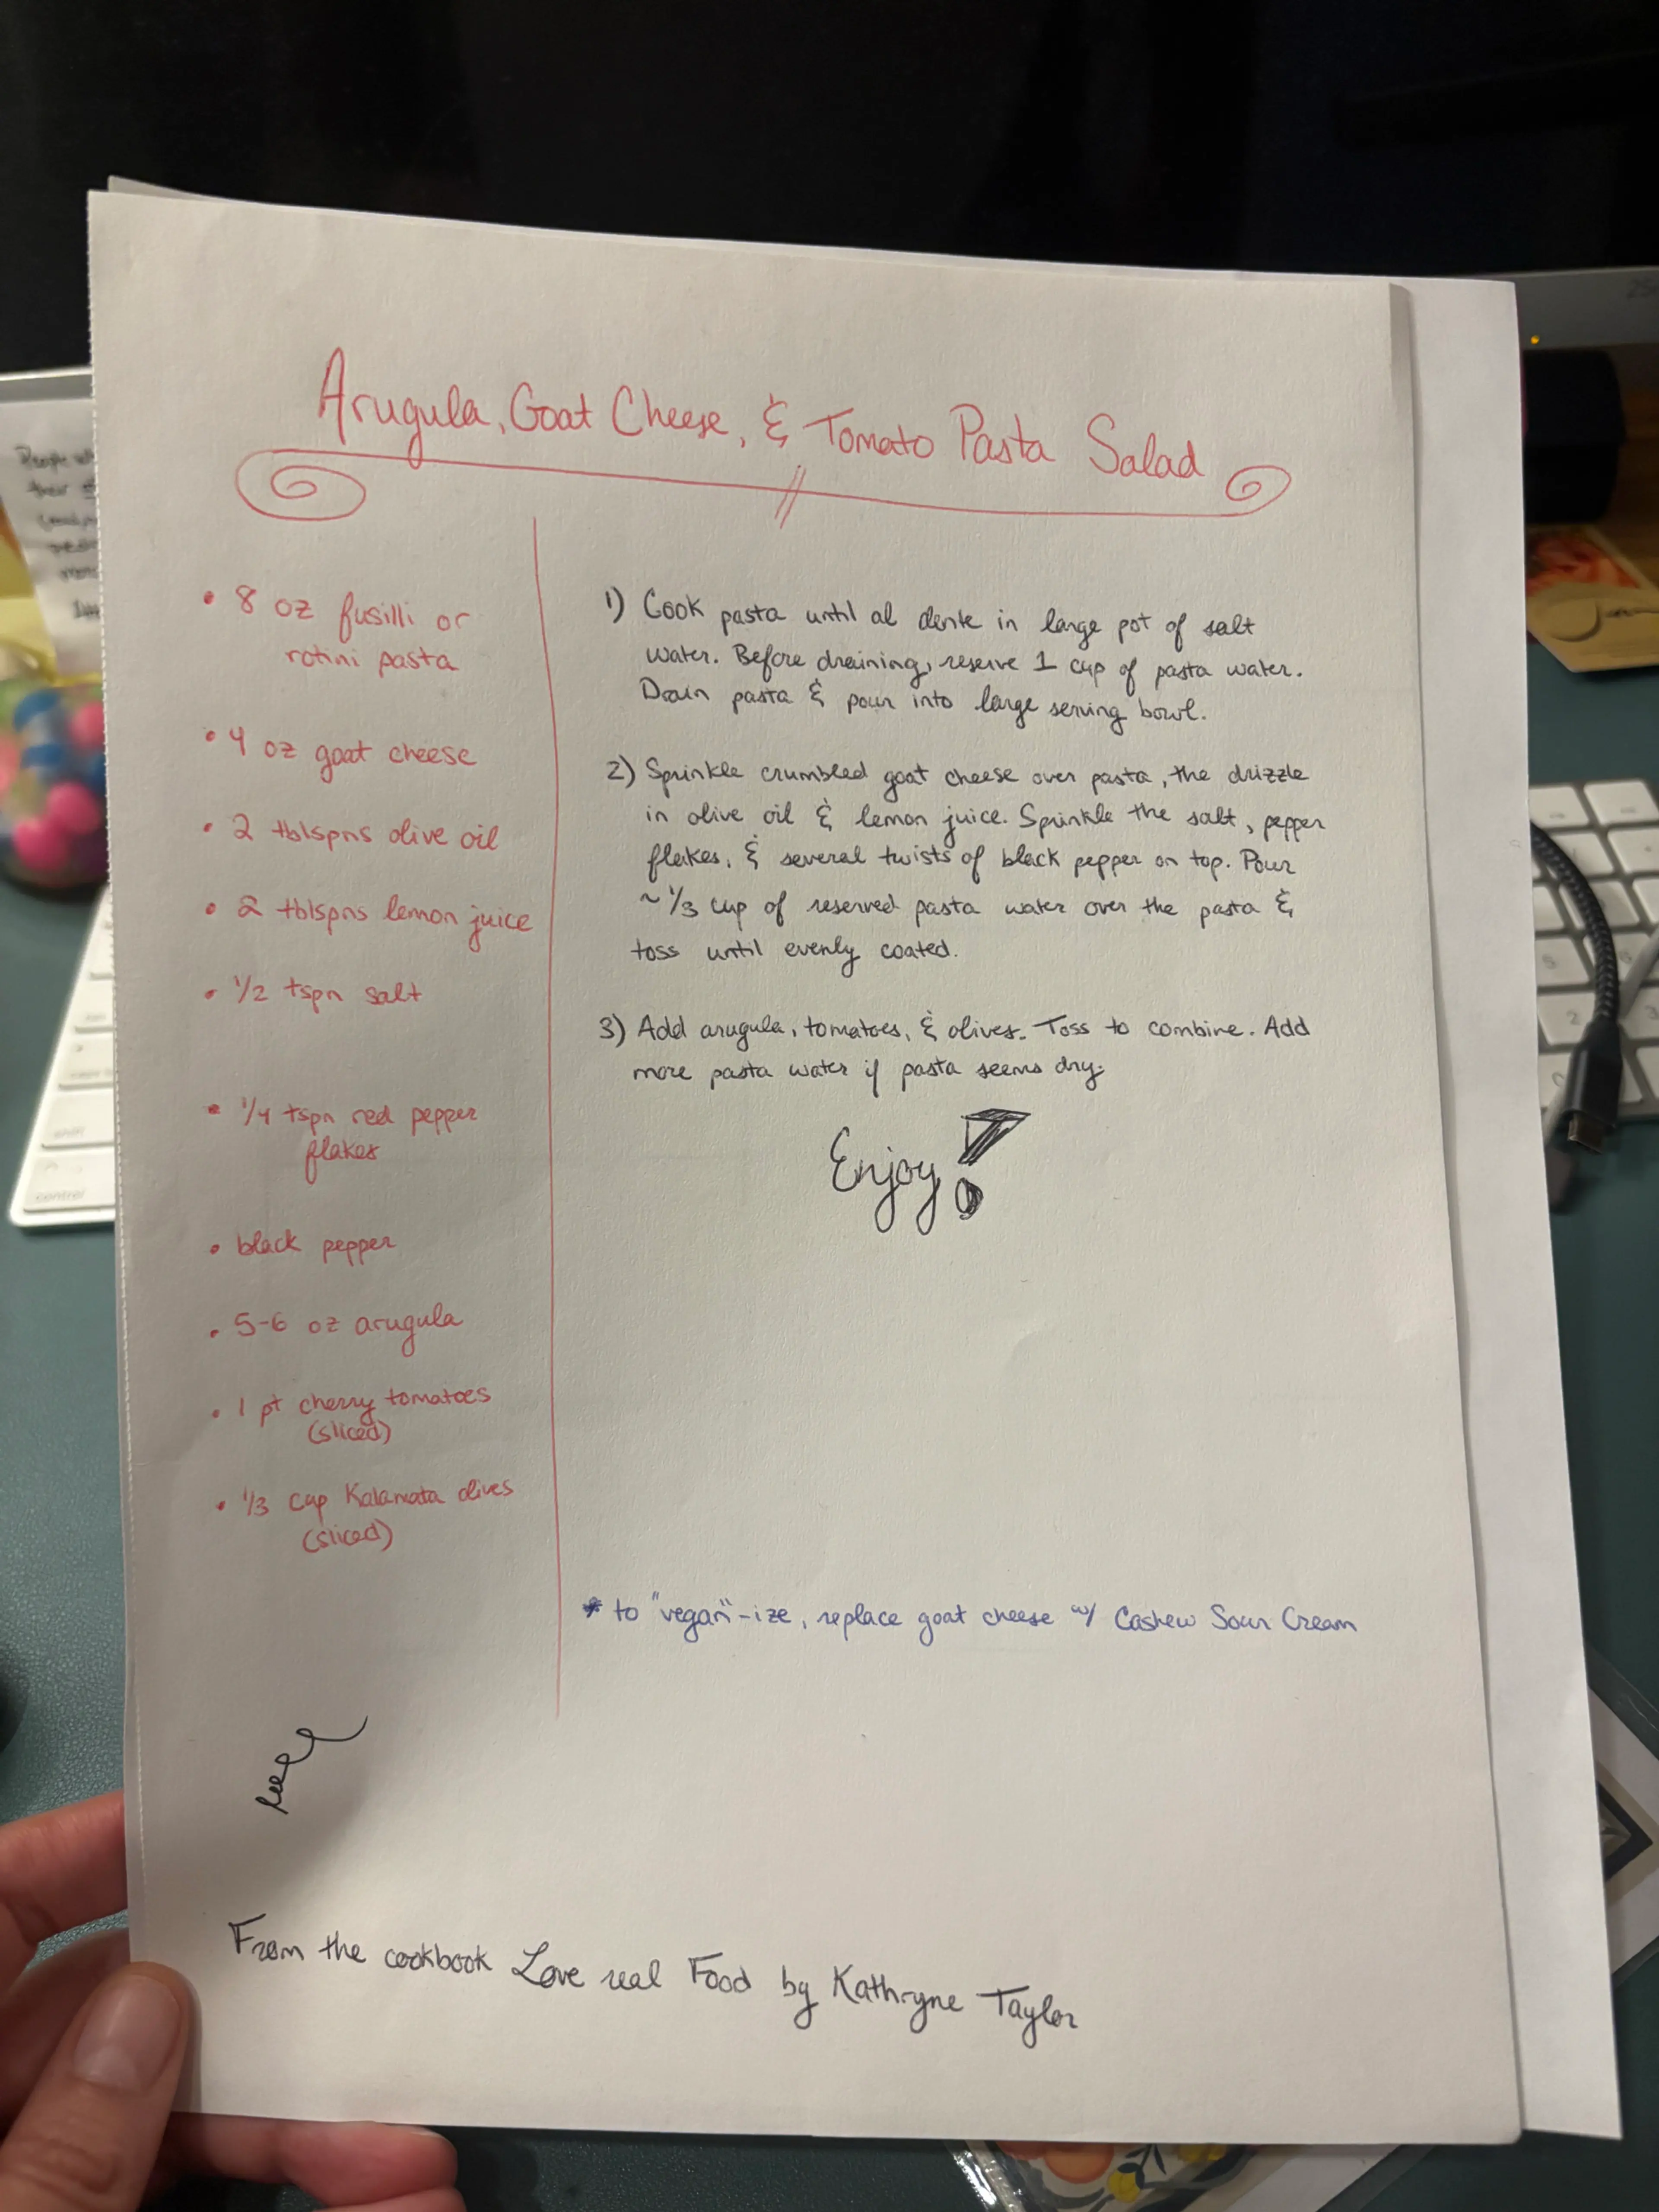 Arugula, Goat Cheese, & Tomato Pasta Salad
• 8 oz fusilli or
rotini pasta
• 4 oz goat cheese
• 2 tblspns olive oil
• 2 tblspns lemon juice
• 1/2 tspn salt
• 1/4 tspn red pepper
flakes
• black pepper
• 5-6 oz arugula
• 1 pt cherry tomatoes
(sliced)
• 1/3 cup Kalamata olives
(sliced)
1) Cook pasta until al dente in large pot of salt
water. Before draining, reserve 1 cup of pasta water.
Drain pasta & pour into large serving bowl.
2) Sprinkle crumbled goat cheese over pasta, the drizzle
in olive oil & lemon juice. Sprinkle the salt, pepper
flakes, & several twists of black pepper on top. Pour
~ 1/3 cup of reserved pasta water over the pasta &
toss until evenly coated.
3) Add arugula, tomatoes, & olives. Toss to combine. Add
more pasta water if pasta seems dry.
Enjoy!
* to "vegan"-ize, replace goat cheese w/ Cashew Sour Cream
From the cookbook Love real Food by Kathryne Taylor
control